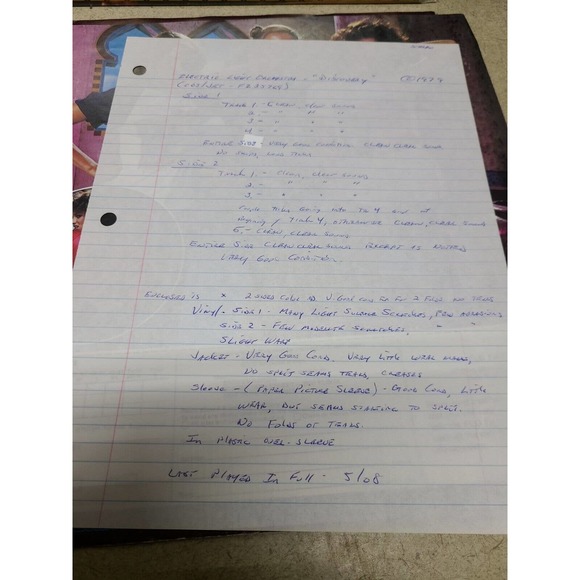 ELECTRIC LIGHT ORCHESTRA - "DISCOVERY" © 1979
SIDE 1
TRACK 1. CLEAN, CLEAR SOUND
2. - " " "
3. - " " "
4. - " " "
ENTIRE SIDE - VERY GOOD CONDITION CLEAN CLEAR SOUND
NO
SIDE 2
TRACK 1. - CLEAN, CLEAR SOUND
2. - " " "
3. - " " "
COUPLE TICKS GOING INTO TR 4 AND AT
TRACK 4, OTHERWISE CLEAN, CLEAR SOUND
5. - CLEAN, CLEAR SOUND
ENTIRE SIDE CLEAN CLEAR SOUND EXCEPT AS NOTED
VERY GOOD CONDITION.
ENCLOSED IS 2 SIDED V. GOOD COND 2 FOLDS NO TEARS
VINYL - SIDE 1 - MANY LIGHT SURFACE SCRATCHES, FEW ABRASIONS
SIDE 2 - FEW MODERATE SCRATCHES, " "
SLIGHT WARP
JACKET - VERY GOOD COND, VERY LITTLE WEAR,
NO SPLIT SEAMS TEARS, CREASES
SLEEVE - (PAPER PICTURE SLEEVE) - GOOD COND, LITTLE
WEAR, BUT SEAMS STARTING TO SPLIT.
NO FOLDS OR TEARS.
IN PLASTIC OVER-SLEEVE
LAST PLAYED IN FULL - 5/08